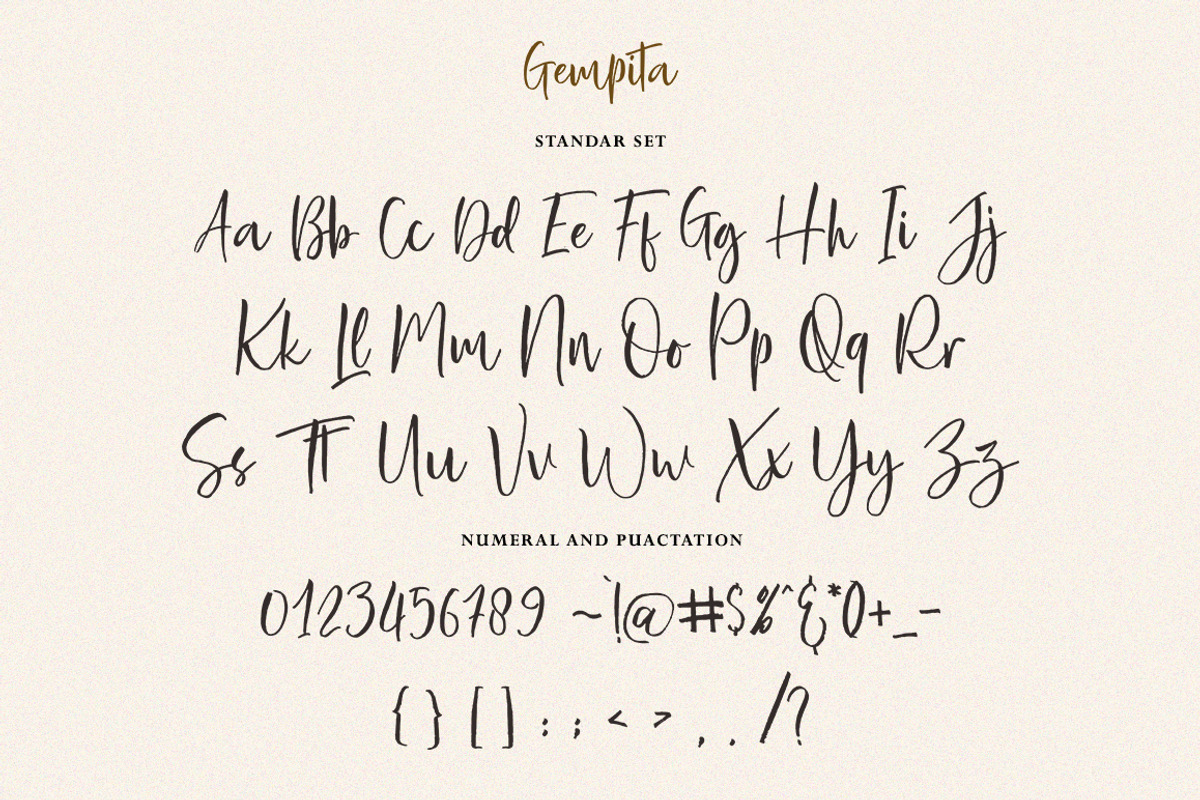 Gempita
STANDAR SET
Aa Bb Cc Dd Ee Ff Gg Hh Ii Jj
Kk Ll Mm Nn Oo Pp Qq Rr
Ss Tt Uu Vv Ww Xx Yy Zz
NUMERAL AND PUACTATION
0123456789 ~`!@#$%^&*()+_-
{ } [ ] : ; < > , . /?